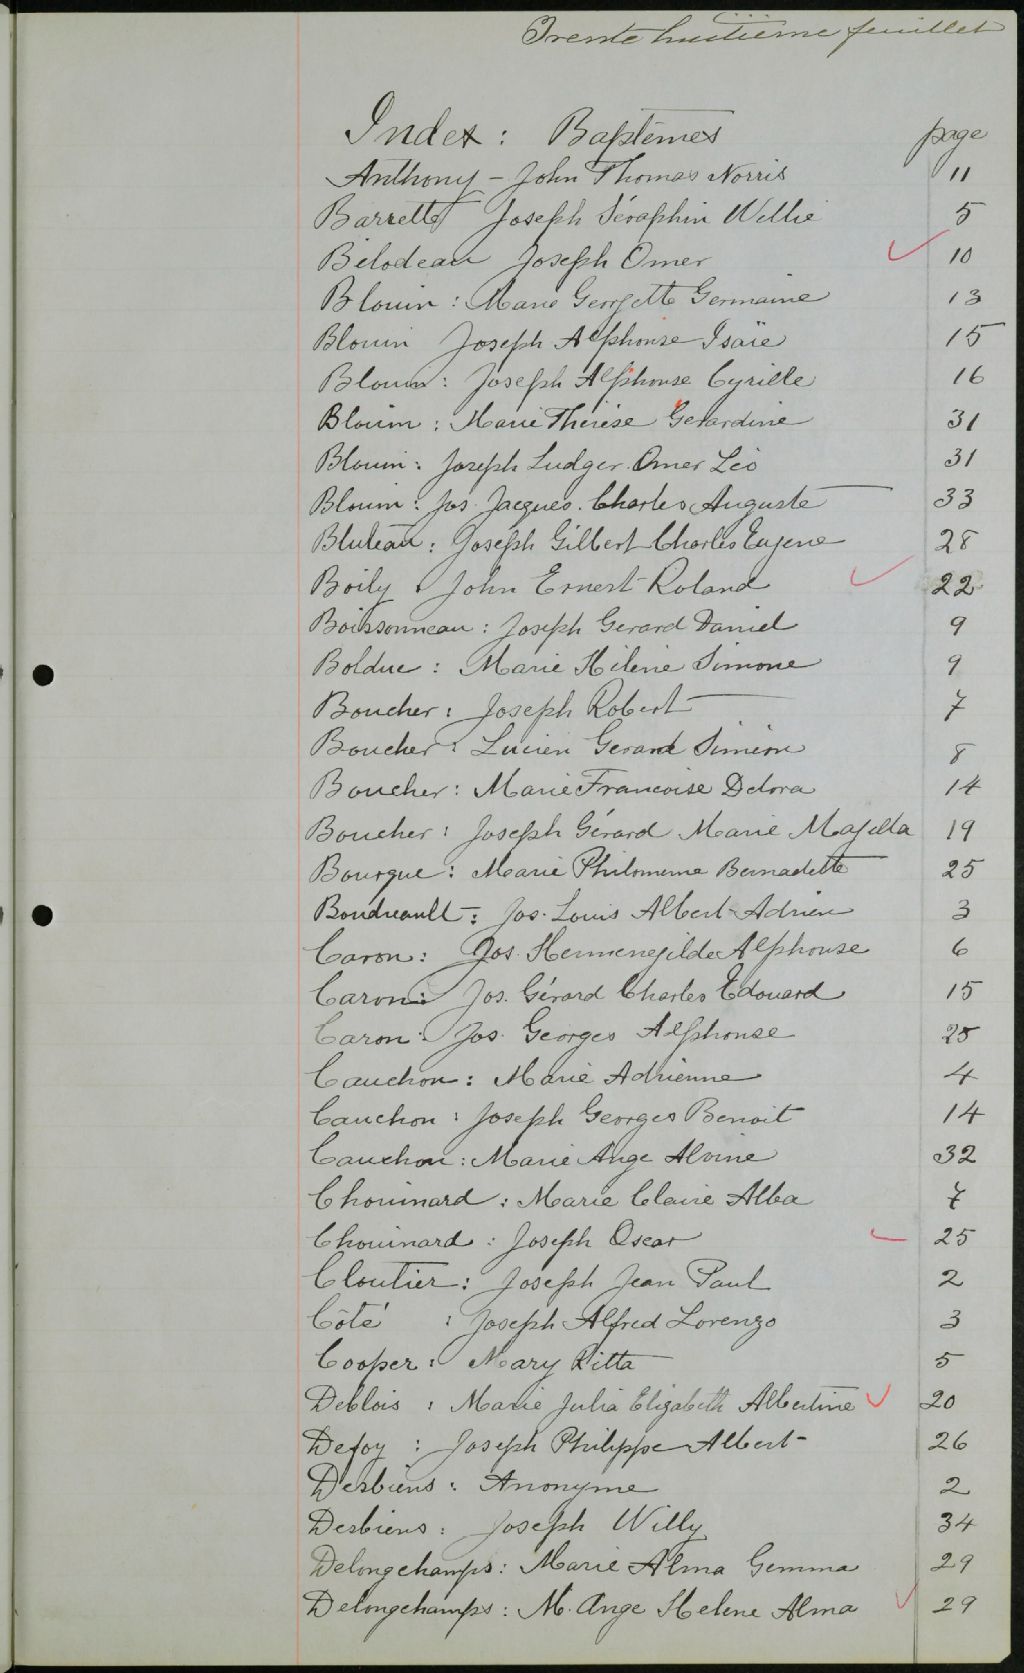 Trente huitième feuillet
Index : Baptêmes page
Anthony - John Thomas Norris 11
Barrette Joseph Séraphin Willie 5
Bélodeau Joseph Omer 10
Blouin : Marie Georgette Germaine 13
Blouin Joseph Alphonse Isaïe 15
Blouin : Joseph Alphonse Cyrille 16
Blouin : Marie Thérèse Gerardine 31
Blouin : Joseph Ludger Omer Léo 31
Blouin : Jos. Jacques. Charles Auguste 33
Bluteau : Joseph Gilbert Charles Eugene 28
Boily John Ernest Roland 22
Boissonneau : Joseph Gerard Daniel 9
Bolduc : Marie Hélène Simone 9
Boucher : Joseph Robert 7
Boucher : Lucien Gerard Siméon 8
Boucher : Marie Francoise Delora 14
Boucher : Joseph Gérard Marie Majella 19
Bourque : Marie Philomene Bernadette 25
Boudreault : Jos. Louis Albert Adrien 3
Caron : Jos. Hermenegilde Alphonse 6
Caron : Jos. Gérard Charles Edouard 15
Caron : Jos. Georges Alphonse 25
Cauchon : Marie Adrienne 4
Cauchon : Joseph Georges Benoit 14
Cauchon : Marie Ange Alvine 32
Chouinard : Marie Claire Alba 7
Chouinard : Joseph Oscar 25
Cloutier : Joseph Jean Paul 2
Côté : Joseph Alfred Lorenzo 3
Cooper : Mary Ritta 5
Deblois : Marie Julia Elizabeth Albertine 20
Defoy : Joseph Philippe Albert 26
Desbiens : Anonyme 2
Desbiens : Joseph Willy 34
Delongchamps : Marie Alma Gemma 29
Delongchamps : M. Ange Helene Alma 29